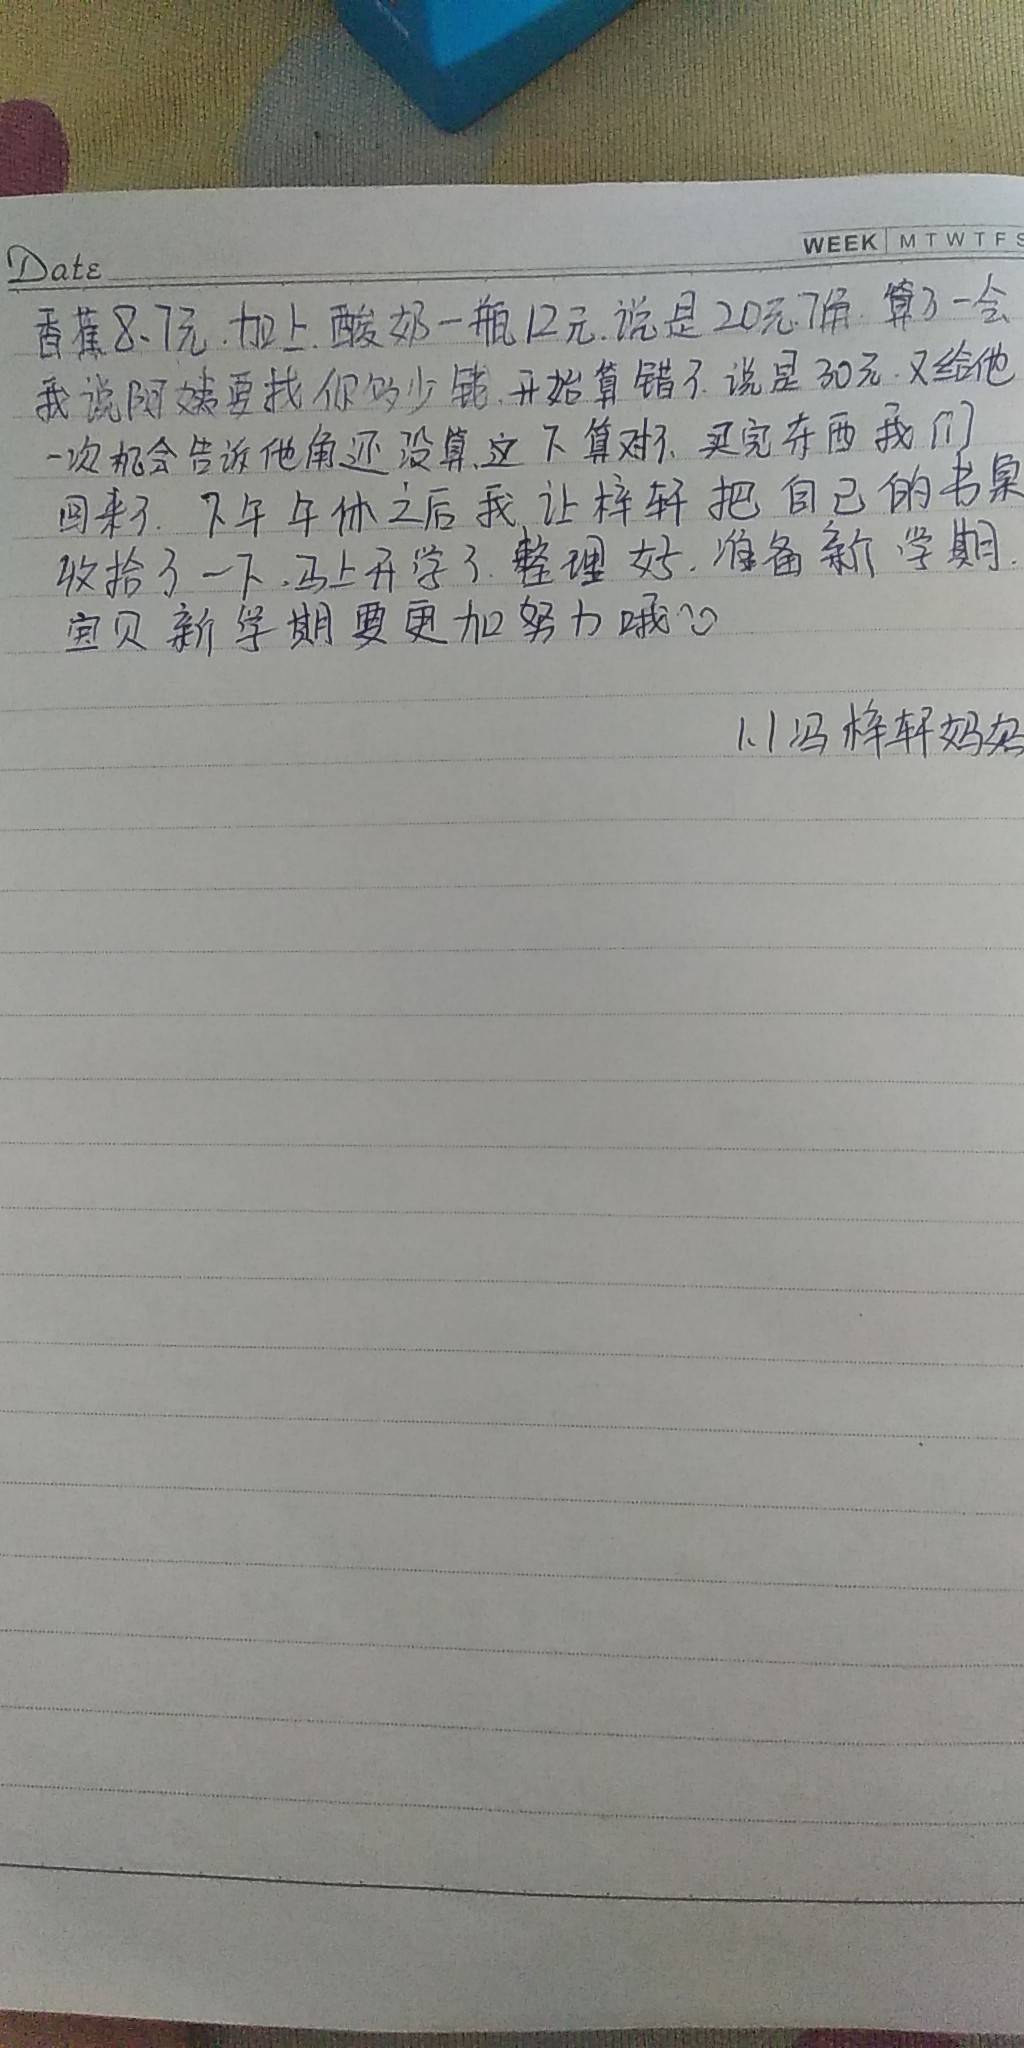 Date
WEEK M T W T F S
香蕉8.7元.加上.酸奶一瓶12元.说是20元.7角.算了一会
我说阿姨要找你多少钱.开始算错了.说是30元.又给他
一次机会告诉他角还没算.这下算对了.买完东西我们
回来了.下午午休之后我让梓轩把自己的书桌
收拾了一下.马上开学了.整理好.准备新学期.
宝贝新学期要更加努力哦
1.1冯梓轩妈妈